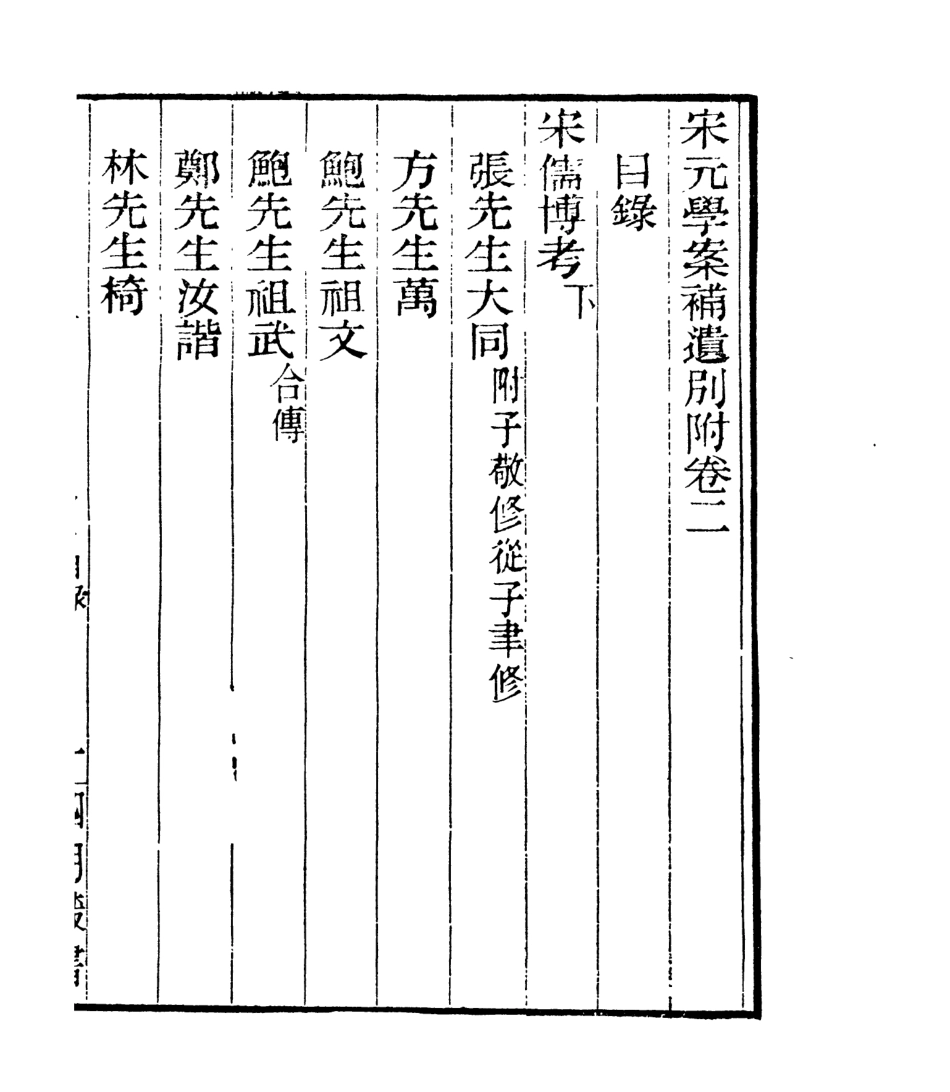 宋元學案補遺別附卷二
目錄
宋儒博考下
張先生大同附子敬修從子聿修
方先生萬
鮑先生祖文
鮑先生祖武合傳
鄭先生汝諧
林先生椅
目錄
四明叢書